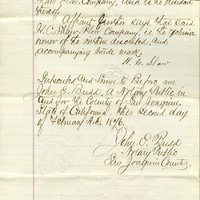 Shaw Plow Company, and is the President
thereof.
Affiant further says that said
H. C. Shaw Plow Company, is the
owner of the within described, and
accompanying trade mark
H. C. Shaw
Subscribed and Sworn to Before me
John E. Budd, a Notary Public in
and for the County of San Joaquin,
State of California, this Second day
of February A.D. 1896.
John E. Budd
Notary Public
San Joaquin County